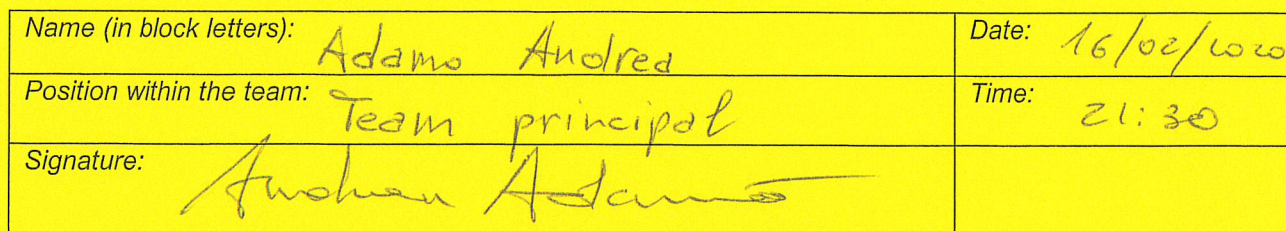 Name (in block letters): Adamo Andrea Date: 16/02/2020
Position within the team: Team principal Time: 21:30
Signature: Andrea Adamo